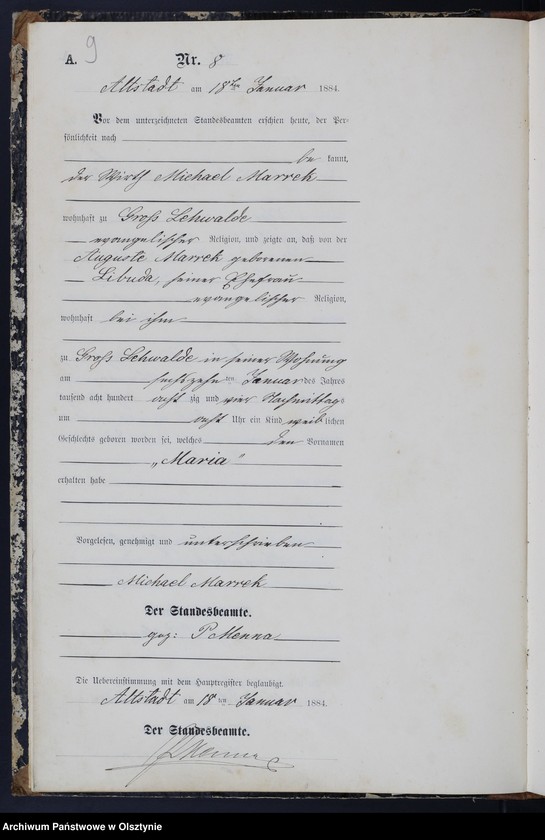 A. 9 Nr. 8
Altstadt am 18ten Januar 1884.
Vor dem unterzeichneten Standesbeamten erschien heute, der Per-
sönlichkeit nach
be kannt,
der Wirth Michael Marrek
wohnhaft zu Groß Lehwalde
evangelischer Religion, und zeigte an, daß von der
Auguste Marrek geborenen
Libuda, seiner Ehefrau
evangelischer Religion,
wohnhaft bei ihm
zu Groß Lehwalde in seiner Wohnung
am sechszehn ten Januar des Jahres
tausend acht hundert acht zig und vier Nachmittags
um acht Uhr ein Kind weib lichen
Geschlechts geboren worden sei, welches den Vornamen
„Maria"
erhalten habe
Vorgelesen, genehmigt und unterschrieben
Michael Marrek
Der Standesbeamte.
gez: P Menna
Die Uebereinstimmung mit dem Hauptregister beglaubigt.
Altstadt am 18 ten Januar 1884.
Der Standesbeamte.
PMenna
Archiwum Państwowe w Olsztynie